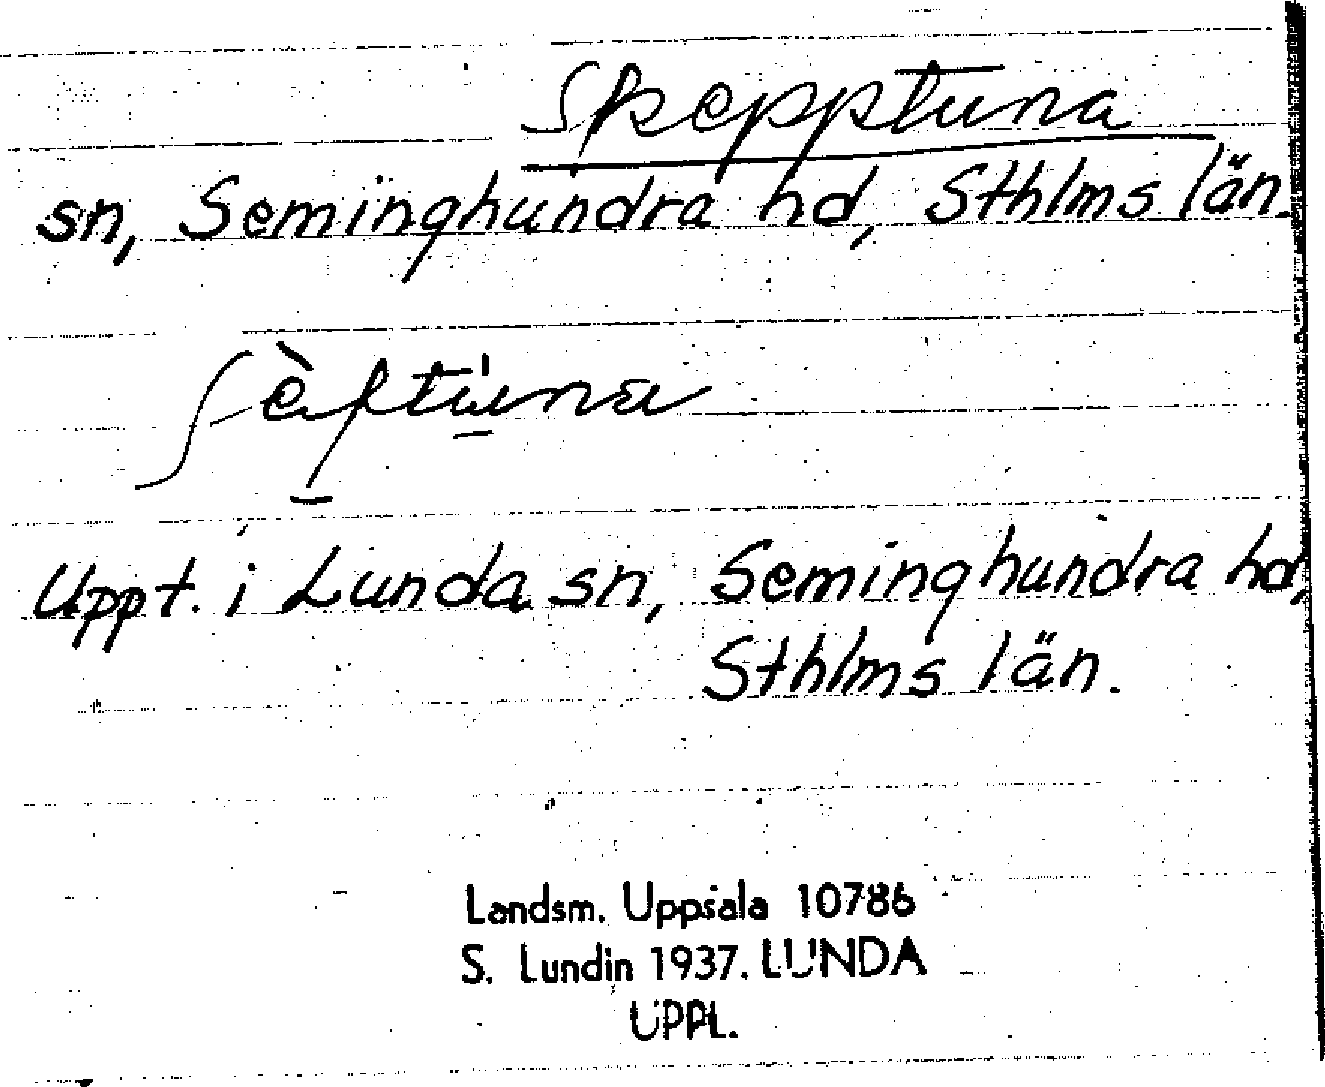 Skepptuna
sn, Seminghundra hd, Sthlms län.
ʃèftùna
Uppt. i Lunda sn, Seminghundra hd,
Sthlms län.
Landsm. Uppsala 10786
S. Lundin 1937. LUNDA
UPPL.